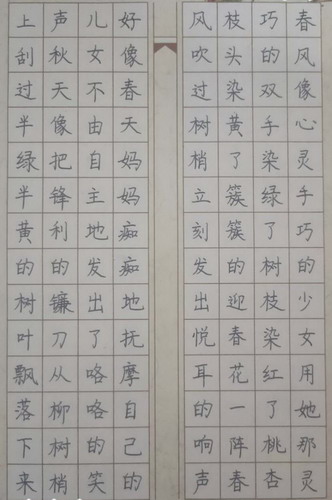 春风像心灵手巧的少女用她那灵
巧的双手染绿了树枝染红了桃杏
枝头染黄了簇簇的迎春花一阵春
风吹过树梢立刻发出悦耳的响声
好像春天妈妈痴痴地抚摩自己的
儿女不由自主地发出了咯咯的笑
声秋天像把锋利的镰刀从柳树梢
上刮过半绿半黄的树叶飘落下来